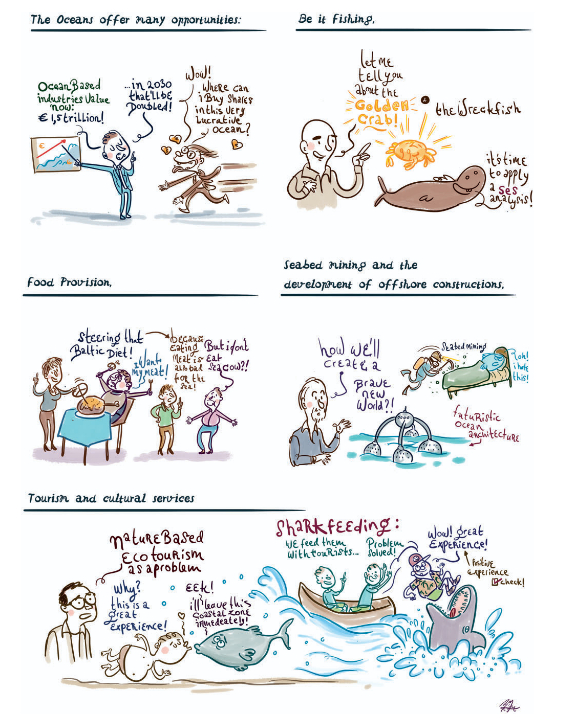 The Oceans offer many opportunities:
Ocean Based
industries value
now:
€ 1,5 trillion!
...in 2030
that'll be
doubled!
Wow!
Where can
i Buy Shares
in this very
lucrative
ocean?
Be it Fishing,
let me
tell you
about the
Golden
Crab!
& the Wreckfish
it's time
to apply
a SES
analysis!
Food Provision,
Steering that
Baltic Diet!
i want
my meat!
because
eating
Meat is
as bad
for the
Sea!
But i don't
eat
Sea Cow?!
Seabed mining and the
development of offshore constructions,
how we'll
create a
Brave
new
World?!
Seabed mining
i hate
this!
futuristic
ocean
architecture
Tourism and cultural services
nature Based
Eco tourism
as a problem
Why?
this is a
great
Experience!
EEK!
i'll leave this
Coastal zone
immediately!
Sharkfeeding:
We feed them
with tourists...
Problem
solved!
Wow! great
Experience!
Positive
experience
check!